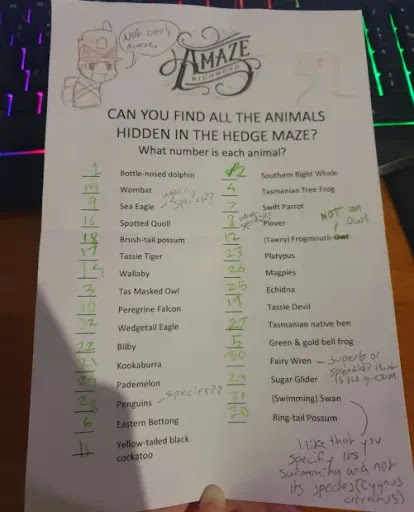 Not cool
AMAZE
RICHMOND
CAN YOU FIND ALL THE ANIMALS
HIDDEN IN THE HEDGE MAZE?
What number is each animal?
1 Bottle-nosed dolphin
Wombat
9 Sea Eagle again species??
16 Spotted Quoll
18 Brush-tail possum
17 Tassie Tiger
14 Wallaby
3 Tas Masked Owl
10 Peregrine Falcon
32 Wedgetail Eagle
22 Bilby
Kookaburra
Pademelon
28 Penguins species??
6 Eastern Bettong
11 Yellow-tailed black
cockatoo
2 Southern Right Whale
4 Tasmanian Tree Frog
7 Swift Parrot
8 Plover
NOT an
owl
12 (Tawny) Frogmouth Owl
23 Platypus
26 Magpies
25 Echidna
19 Tassie Devil
27 Tasmanian native hen
5 Green & gold bell frog
30 Fairy Wren superb or
splendid? that
is the question.
29 Sugar Glider
31 (Swimming) Swan
20 Ring-tail Possum
I like that you
specify its
swimming and not
its species (Cygnus
atratus)